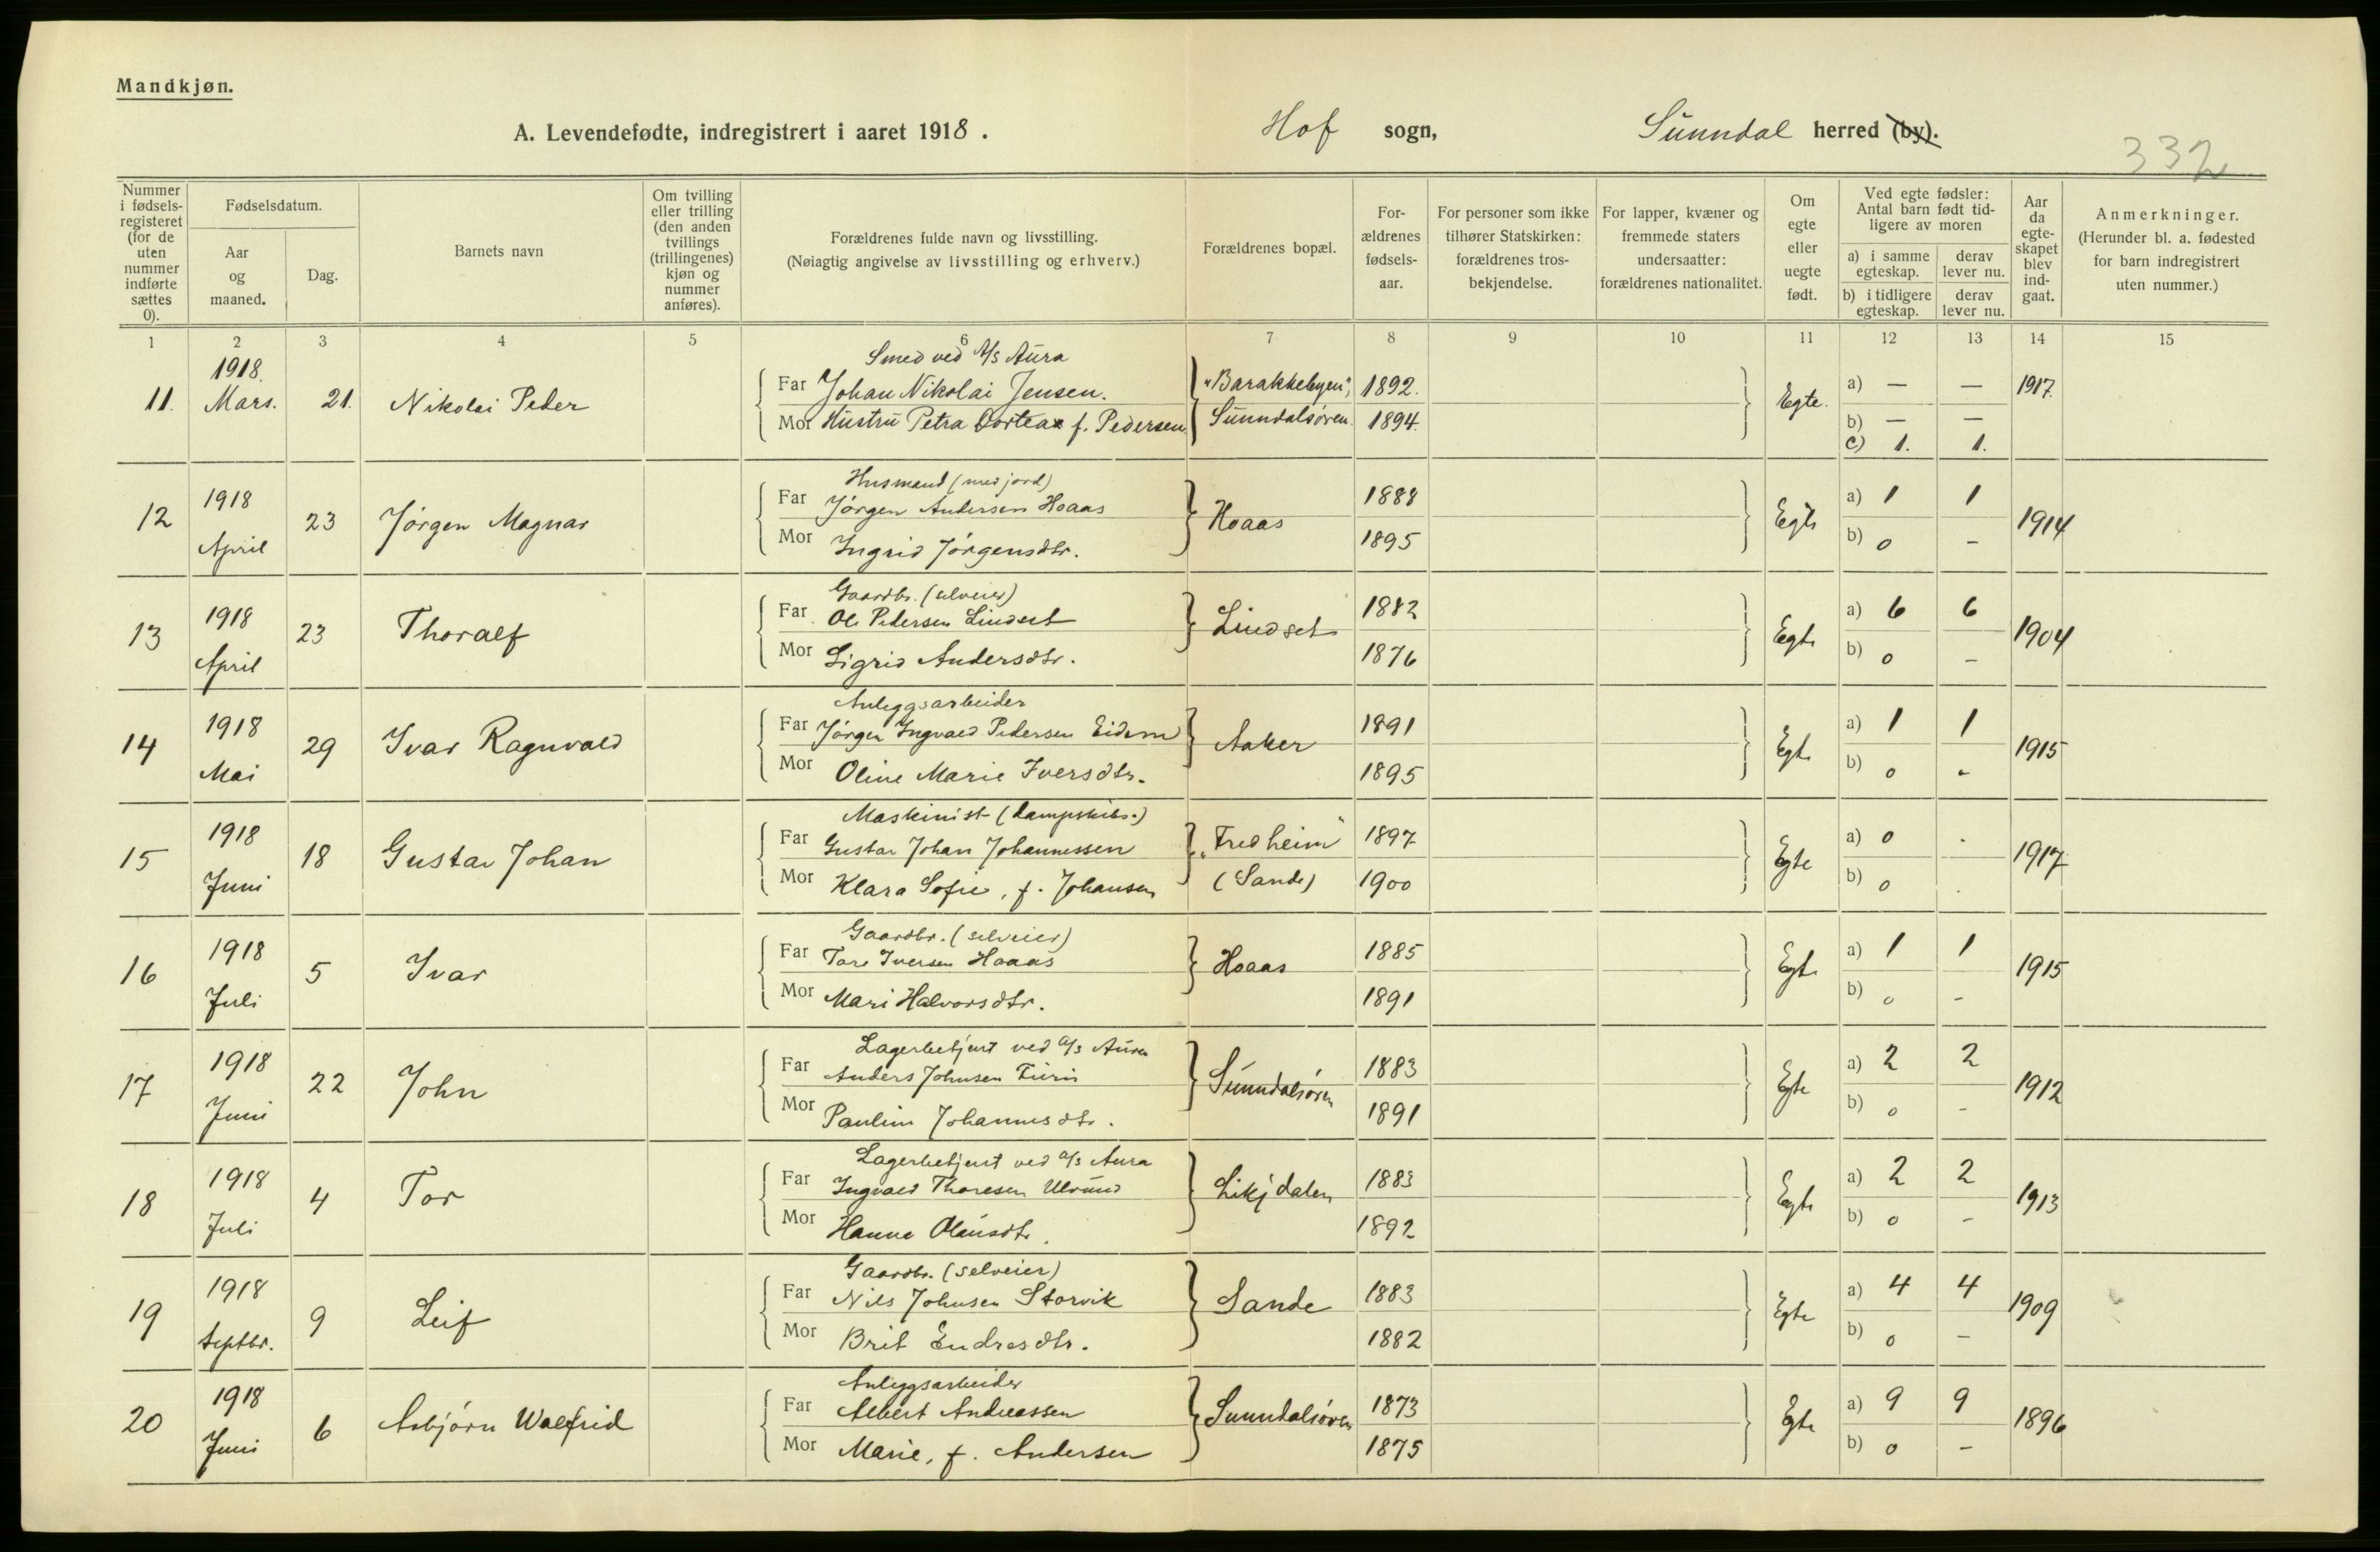 Mandkjøn.
A. Levendefødte, indregistrert i aaret 1918. Hof sogn, Sunndal herred (by).
332
Nummer i fødsels-registeret (for de uten nummer indførte sættes 0).
Fødselsdatum.
Aar og maaned.
Dag.
Barnets navn
Om tvilling eller trilling (den anden tvillings (trillingenes) kjøn og nummer anføres).
Forældrenes fulde navn og livsstilling.
(Nøiagtig angivelse av livsstilling og erhverv.)
Forældrenes bopæl.
For-ældrenes fødsels-aar.
For personer som ikke tilhører Statskirken: forældrenes tros-bekjendelse.
For lapper, kvæner og fremmede staters undersaatter: forældrenes nationalitet.
Om egte eller uegte født.
Ved egte fødsler: Antal barn født tid-ligere av moren
a) i samme egteskap.
derav lever nu.
b) i tidligere egteskap.
derav lever nu.
Aar da egte-skapet blev ind-gaat.
Anmerkninger.
(Herunder bl. a. fødested for barn indregistrert uten nummer.)
1 2 3 4 5 6 7 8 9 10 11 12 13 14 15
Smed ved A/s Aura
11. 1918. Mars. 21. Nikolai Peder
Far Johan Nikolai Jensen. "Barakkebyen", 1892. Egte. a) — — 1917.
Mor Hustru Petra Dortea f. Pedersen. Sunndalsøren. 1894. b) — —
c) 1. 1.
Husmand (med jord)
12 1918 April 23 Jørgen Magnar
Far Jørgen Andersen Hoaas Hoaas 1888 Egte a) 1 1 1914
Mor Ingrid Jørgensdtr. 1895 b) 0 –
Gaardbr. (selveier)
13 1918 April 23 Thoralf
Far Ole Pedersen Lindset Lindset 1882 Egte a) 6 6 1904
Mor Sigrid Andersdtr. 1876 b) 0 –
Anleggsarbeider
14 1918 Mai 29 Ivar Ragnvald
Far Jørgen Ingvald Pedersen Eidem Aaker 1891 Egte a) 1 1 1915
Mor Oline Marie Iversdtr. 1895 b) 0 -
Maskinist (dampskibs.)
15 1918 Juni 18 Gustav Johan
Far Gustav Johan Johannessen „Fredheim" 1897 Egte a) 0 . 1917
Mor Klara Sofie, f. Johansen (Sande) 1900 b) 0 .
Gaardbr. (selveier)
16 1918 Juli 5 Ivar
Far Tore Iversen Hoaas Hoaas 1885 Egte a) 1 1 1915
Mor Mari Halvorsdtr. 1891 b) 0 –
Lagerbetjent ved A/s Aura
17 1918 Juni 22 John
Far Anders Johnsen Sunndalsøren 1883 Egte a) 2 2 1912
Mor Pauline Johannesdtr. 1891 b) 0 -
Lagerbetjent ved A/s Aura
18 1918 Juli 4 Tor
Far Ingvald Thoresen Ulvund 1883 Egte a) 2 2 1913
Mor Hanna Olausdtr. 1892 b) 0 –
Gaardbr. (selveier)
19 1918 Septbr. 9 Leif
Far Nils Johnsen Storvik Sande 1883 Egte a) 4 4 1909
Mor Brit Endresdtr. 1882 b) 0 –
Anleggsarbeider
20 1918 Juni 6 Asbjørn Walfrid
Far Albert Andreassen Sunndalsøren 1873 Egte a) 9 9 1896
Mor Marie, f. Andersen 1875 b) 0 –